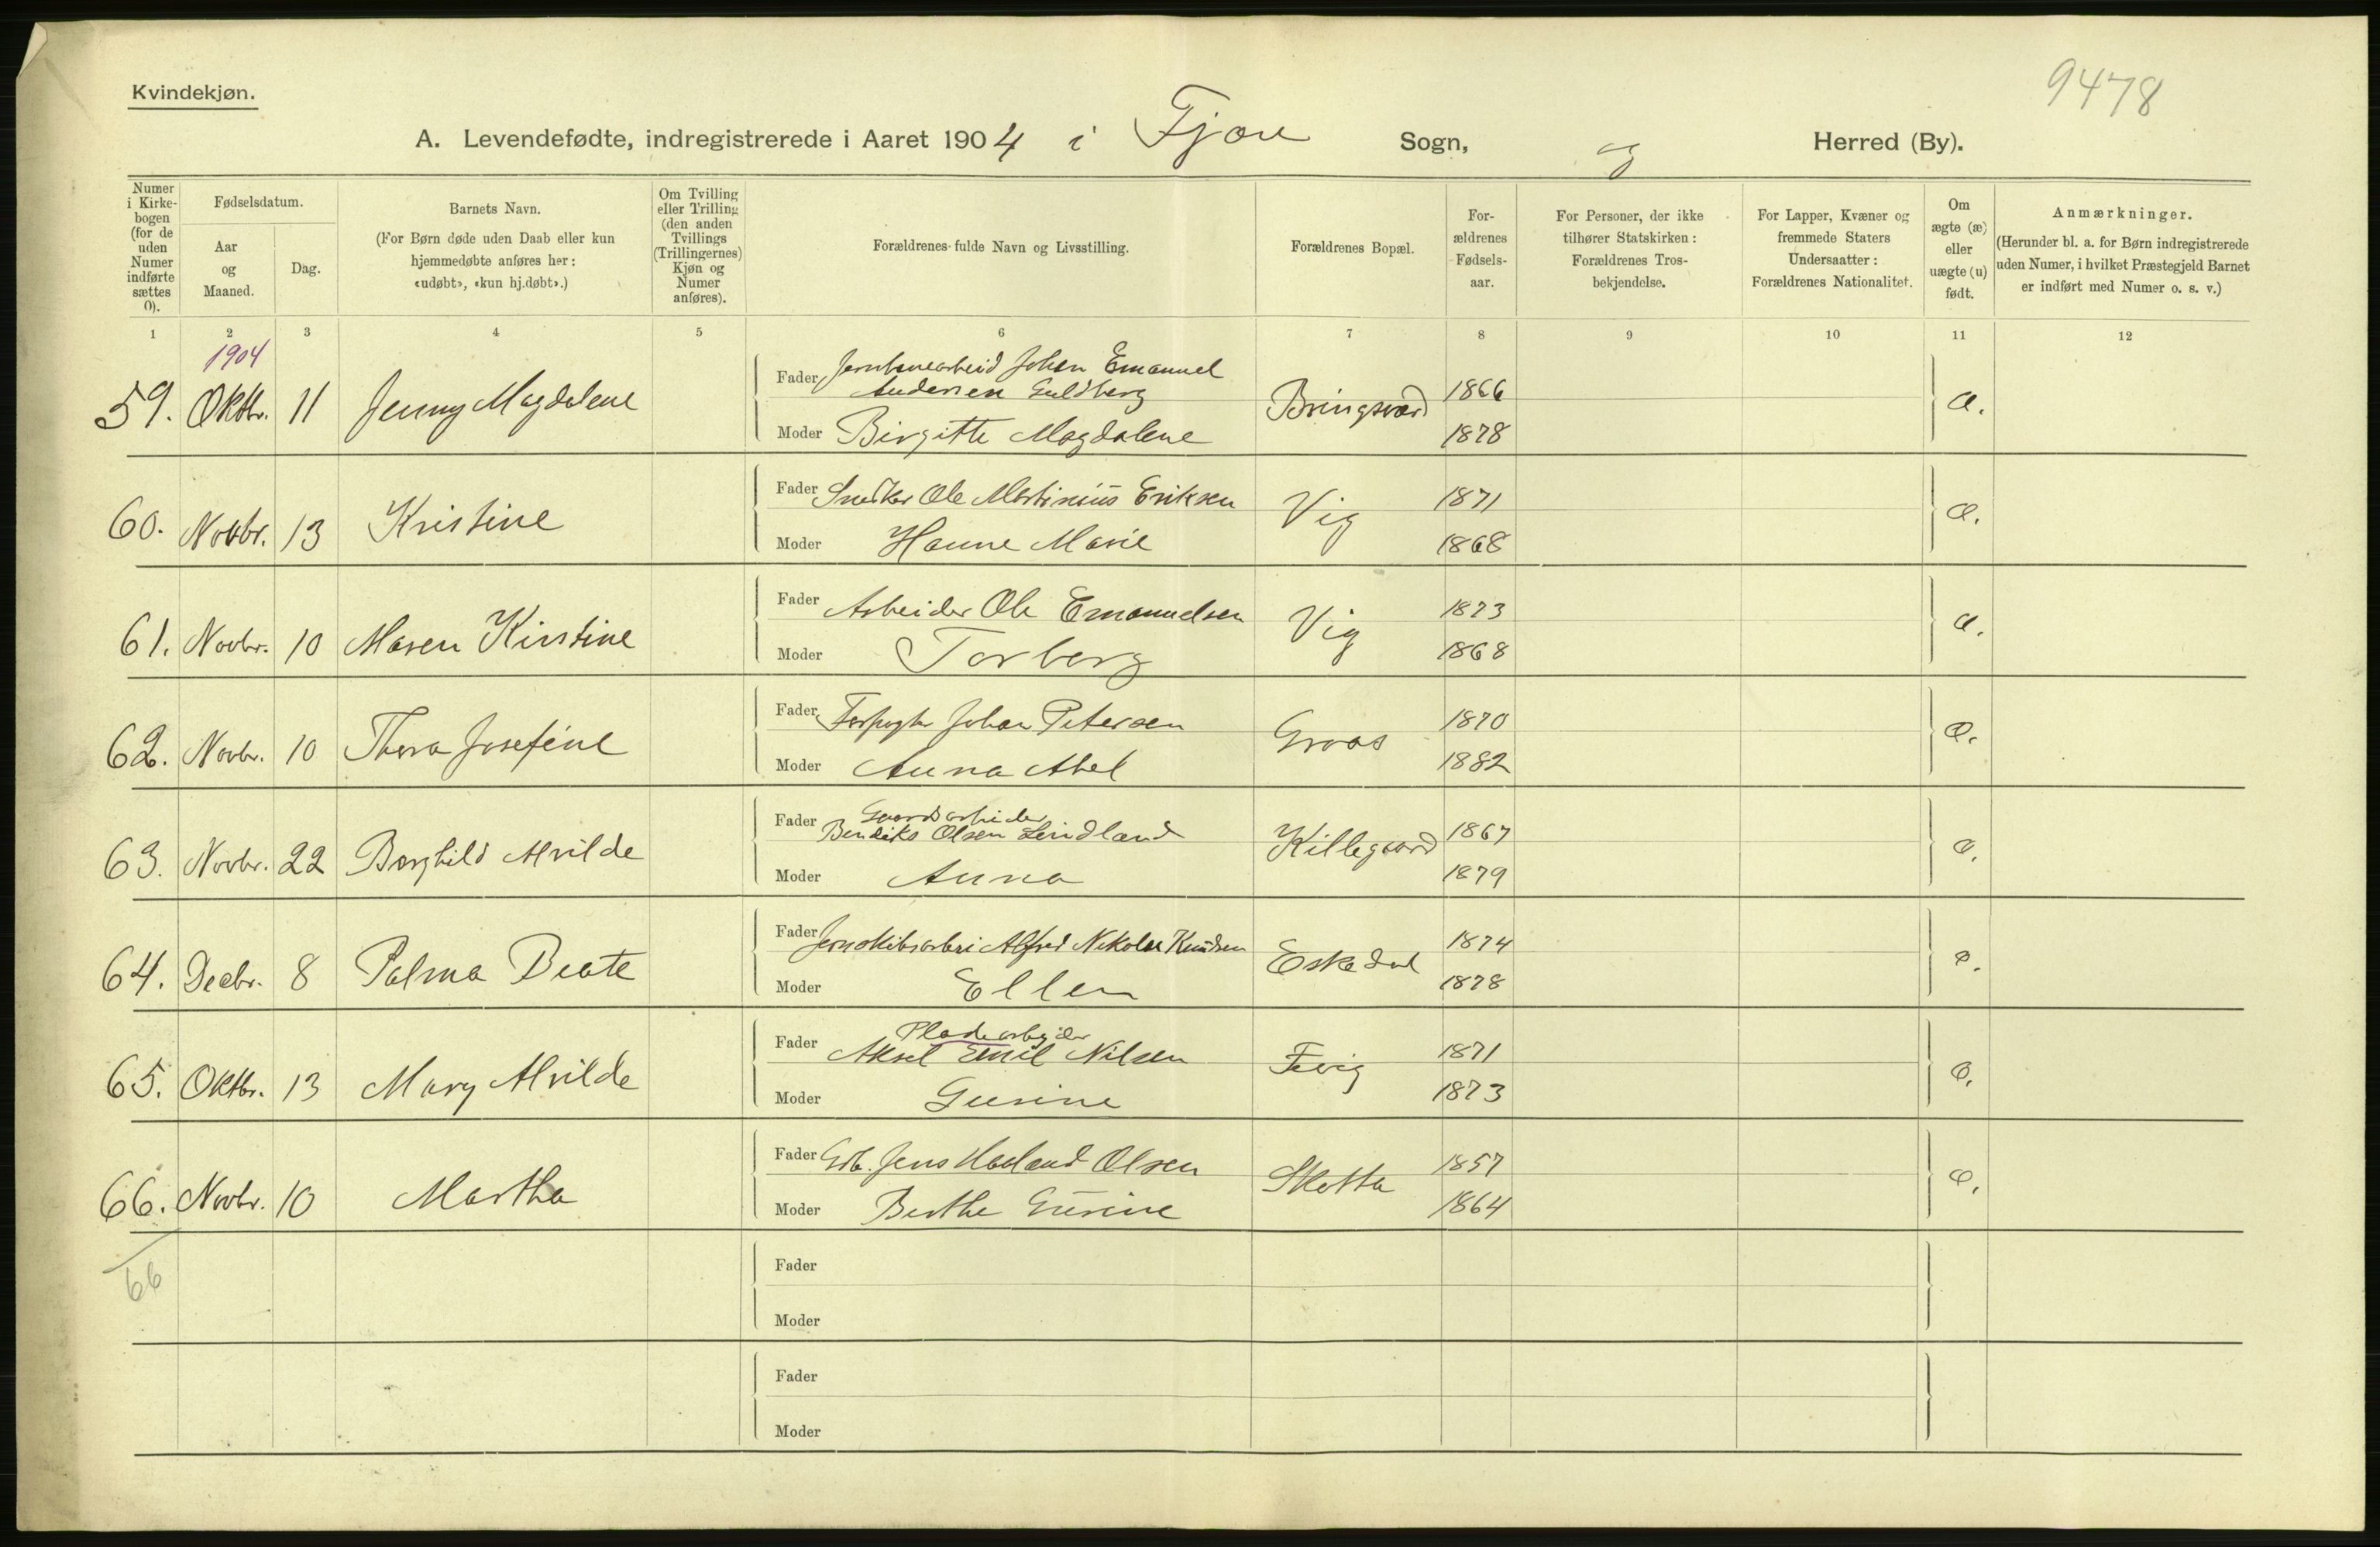 9478
Kvindekjøn.
A. Levendefødte, indregistrerede i Aaret 1904 i Fjære Sogn, og Herred (By).
Numer i Kirkebogen (for de uden Numer indførte sættes 0).
Fødselsdatum.
Aar og Maaned.
Dag.
Barnets Navn.
(For Børn døde uden Daab eller kun hjemmedøbte anføres her: «udøbt», «kun hj.døbt».)
Om Tvilling eller Trilling (den anden Tvillings (Trillingernes) Kjøn og Numer anføres).
Forældrenes fulde Navn og Livsstilling.
Forældrenes Bopæl.
Forældrenes Fødselsaar.
For Personer, der ikke tilhører Statskirken: Forældrenes Trosbekjendelse.
For Lapper, Kvæner og fremmede Staters Undersaatter: Forældrenes Nationalitet.
Om ægte (æ) eller uægte (u) født.
Anmærkninger.
(Herunder bl. a. for Børn indregistrerede uden Numer, i hvilket Præstegjeld Barnet er indført med Numer o. s. v.)
1 2 3 4 5 6 7 8 9 10 11 12
1904
59. Oktbr. 11 Jenny Magdalene Fader Johan Emanuel Andersen Guldberg Bringsværd 1866 æ.
Moder Birgitte Magdalene 1878
60. Novbr. 13 Kristine Fader Snedker Ole Martinius Eriksen Vig 1871 æ.
Moder Hanne Marie 1868
61. Novbr. 10 Maren Kirstine Fader Arbeider Ole Emanuelsen Vig 1873 æ.
Moder Torberg 1868
62. Novbr. 10 Thora Josefine Fader Forpagter Johan Petersen Groos 1870 æ.
Moder Anna Abel 1882
63. Novbr. 22 Borghild Alvilde Fader Gaardsarbeider Bendiks Olsen Lindland Killegaard 1867 æ.
Moder Anna 1879
64. Decbr. 8 Palma Beate Fader Jernskibsarbei Alfred Nikolai Knudsen Eskedal 1874 æ.
Moder Ellen 1878
65. Oktbr. 13 Mary Alvilde Fader Pladearbejder Aksel Emil Nilsen Fevig 1871 æ.
Moder Gusine 1873
66. Novbr. 10 Martha Fader Gdb. Jens Haaland Olsen Skotta 1857 æ.
Moder Berthe Gusine 1864
66
Fader
Moder
Fader
Moder